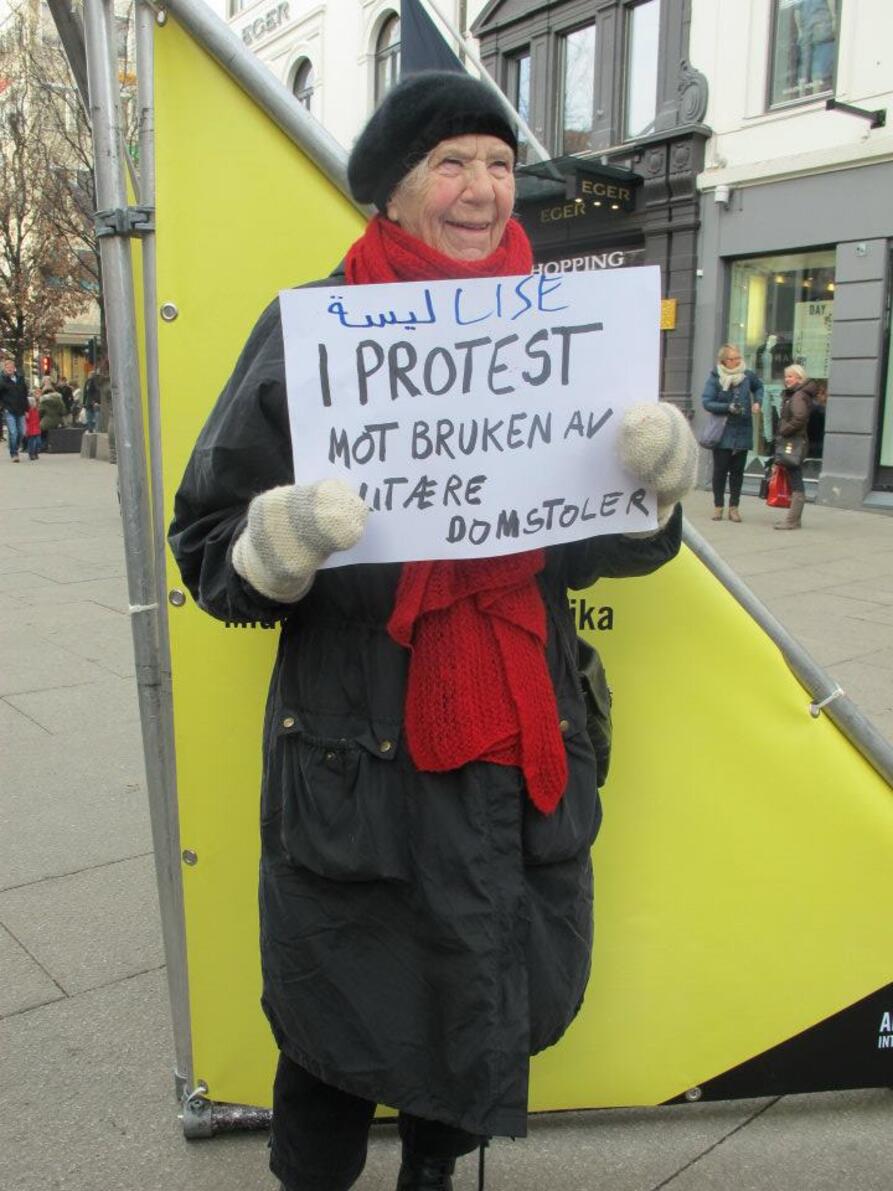 EGER
EGER
EGER
HOPPING
DAY
ليسة LISE
I PROTEST
MOT BRUKEN AV
LITÆRE
DOMSTOLER
ika